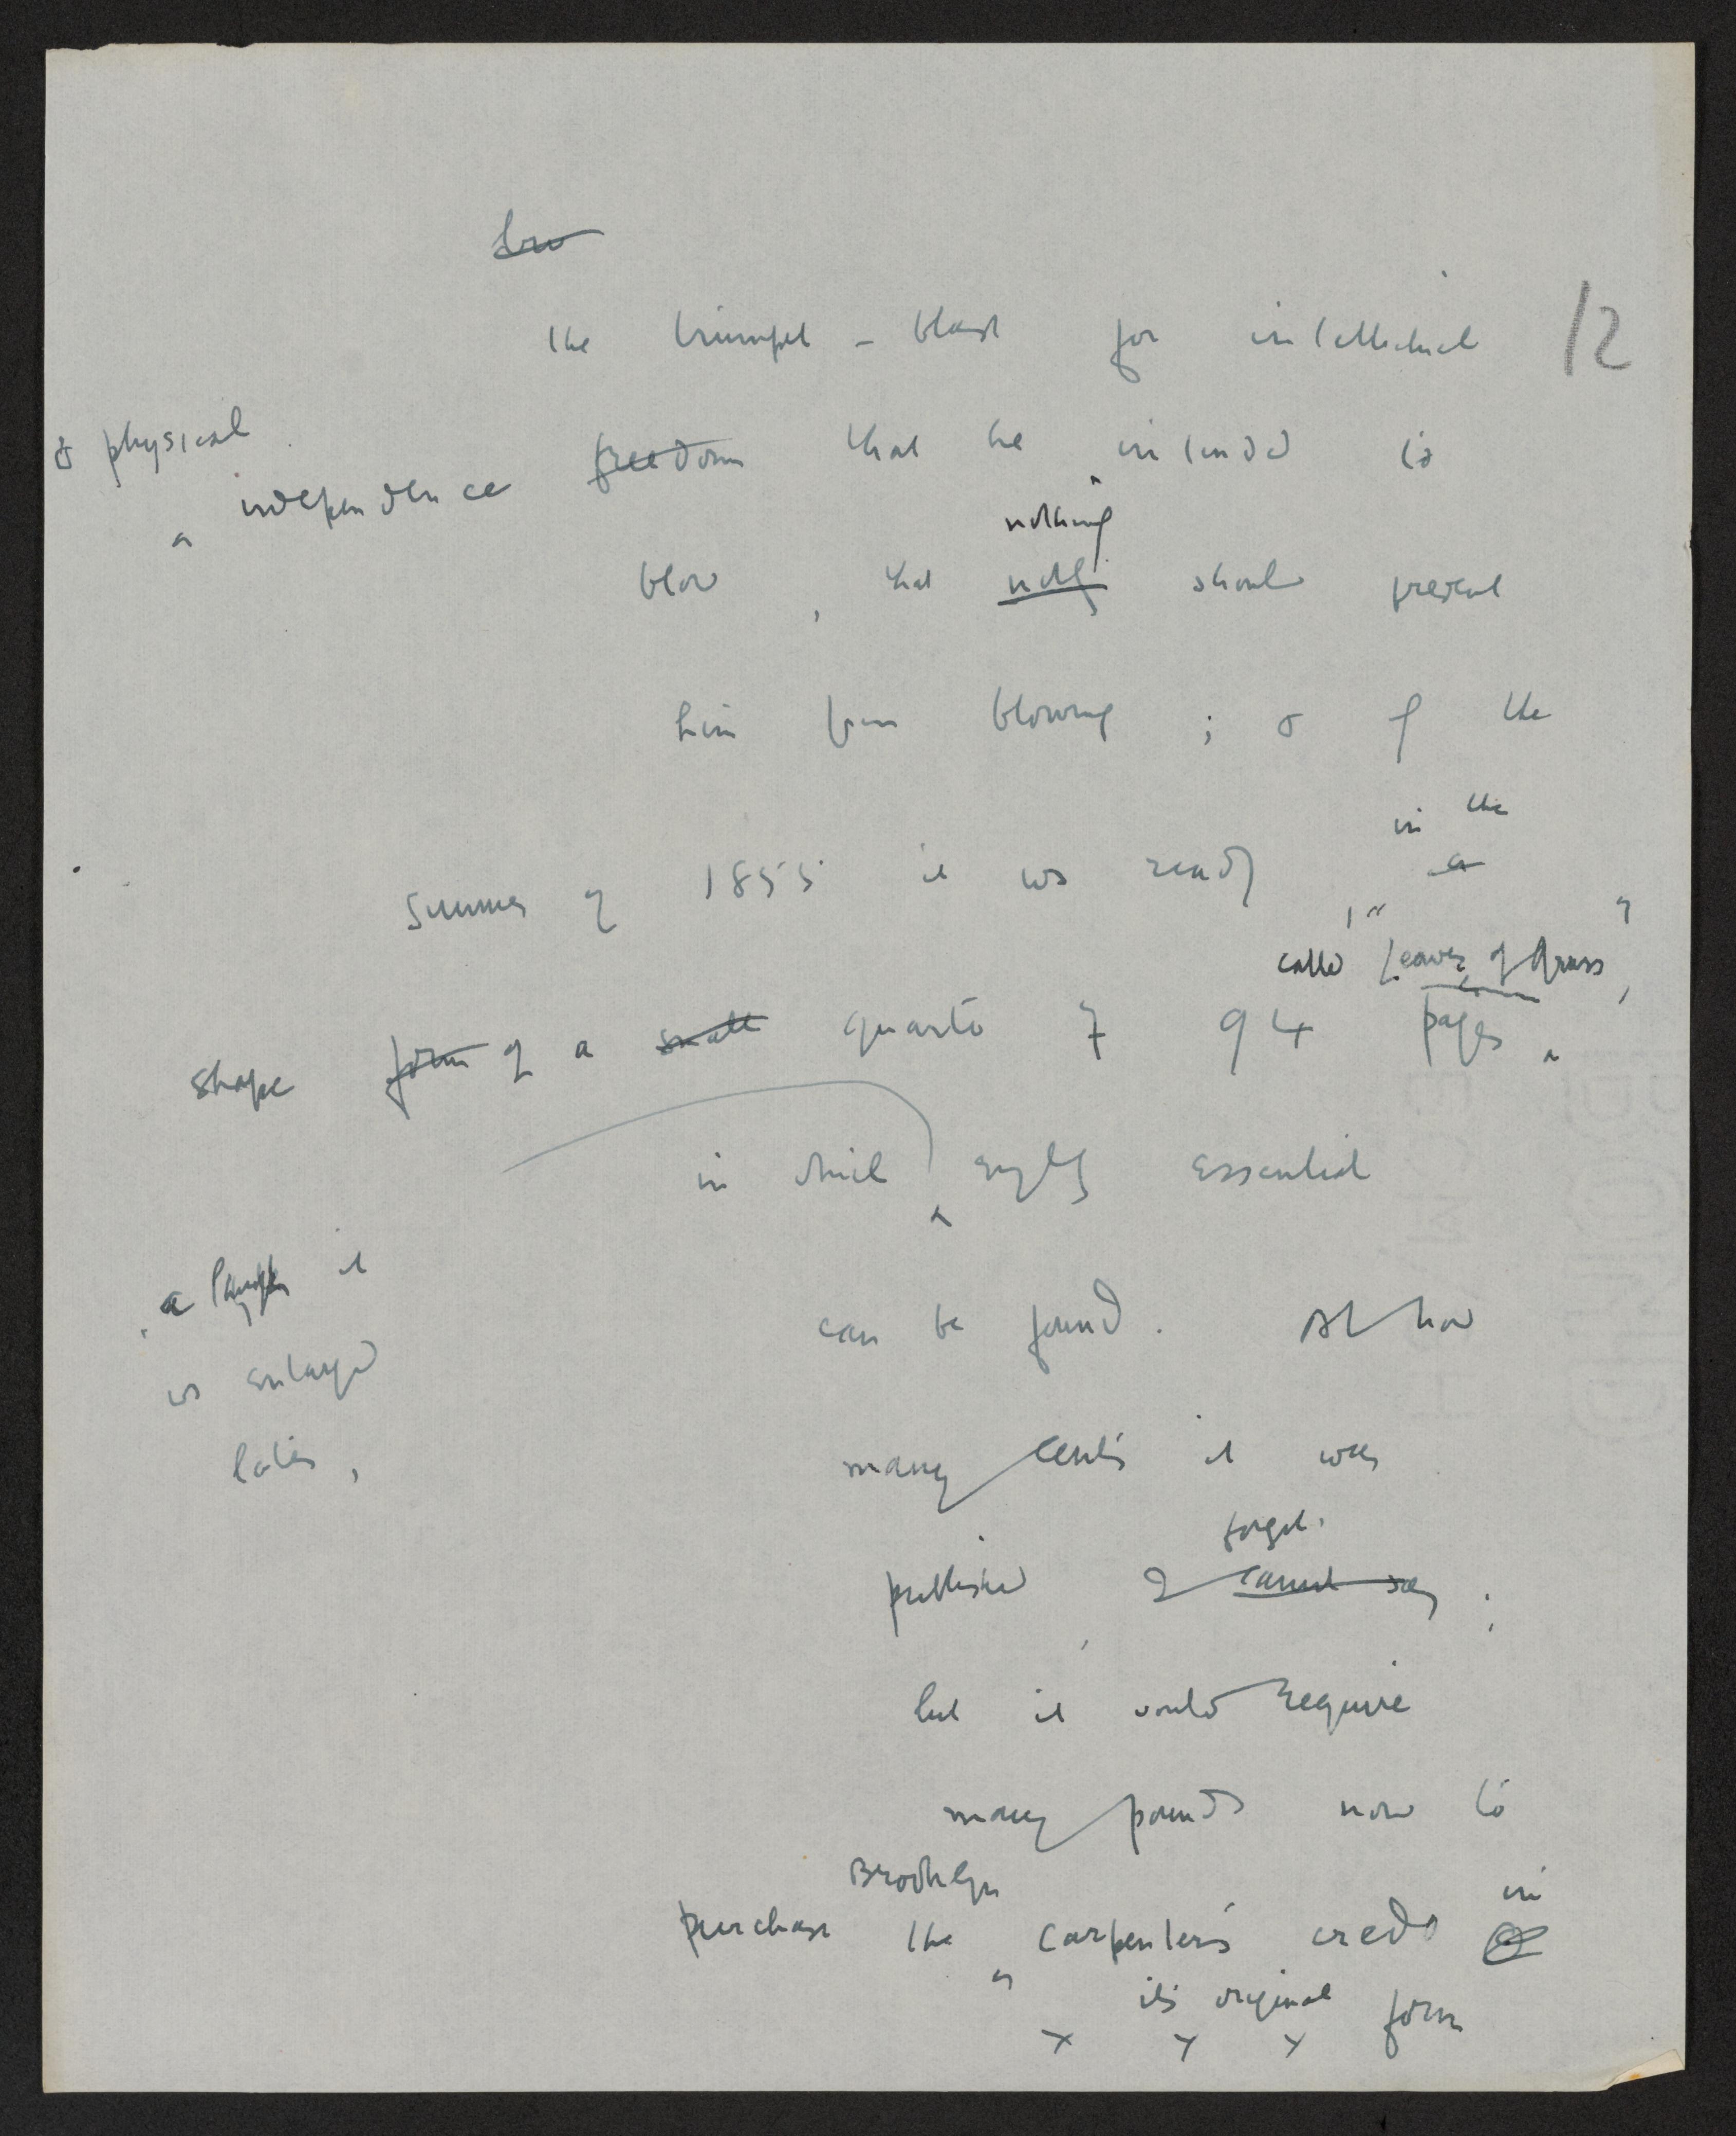 12
the trumpet - blast for intellectual
& physical
independence freedom that he intended to
nothing
blow , that nothg should prevent
him from blowing ; & the
in the
a
summer of 1855 it was ready
called "Leaves of Grass",
shape form of a small quarto of 94 pages
in which essential
a it
can be found. At how
was enlarged
later,
many cents it was
forget.
published , I cannot say ;
but it would require
many pounds now to
Brooklyn
in
purchase the carpenter's credo
its original form
x x x